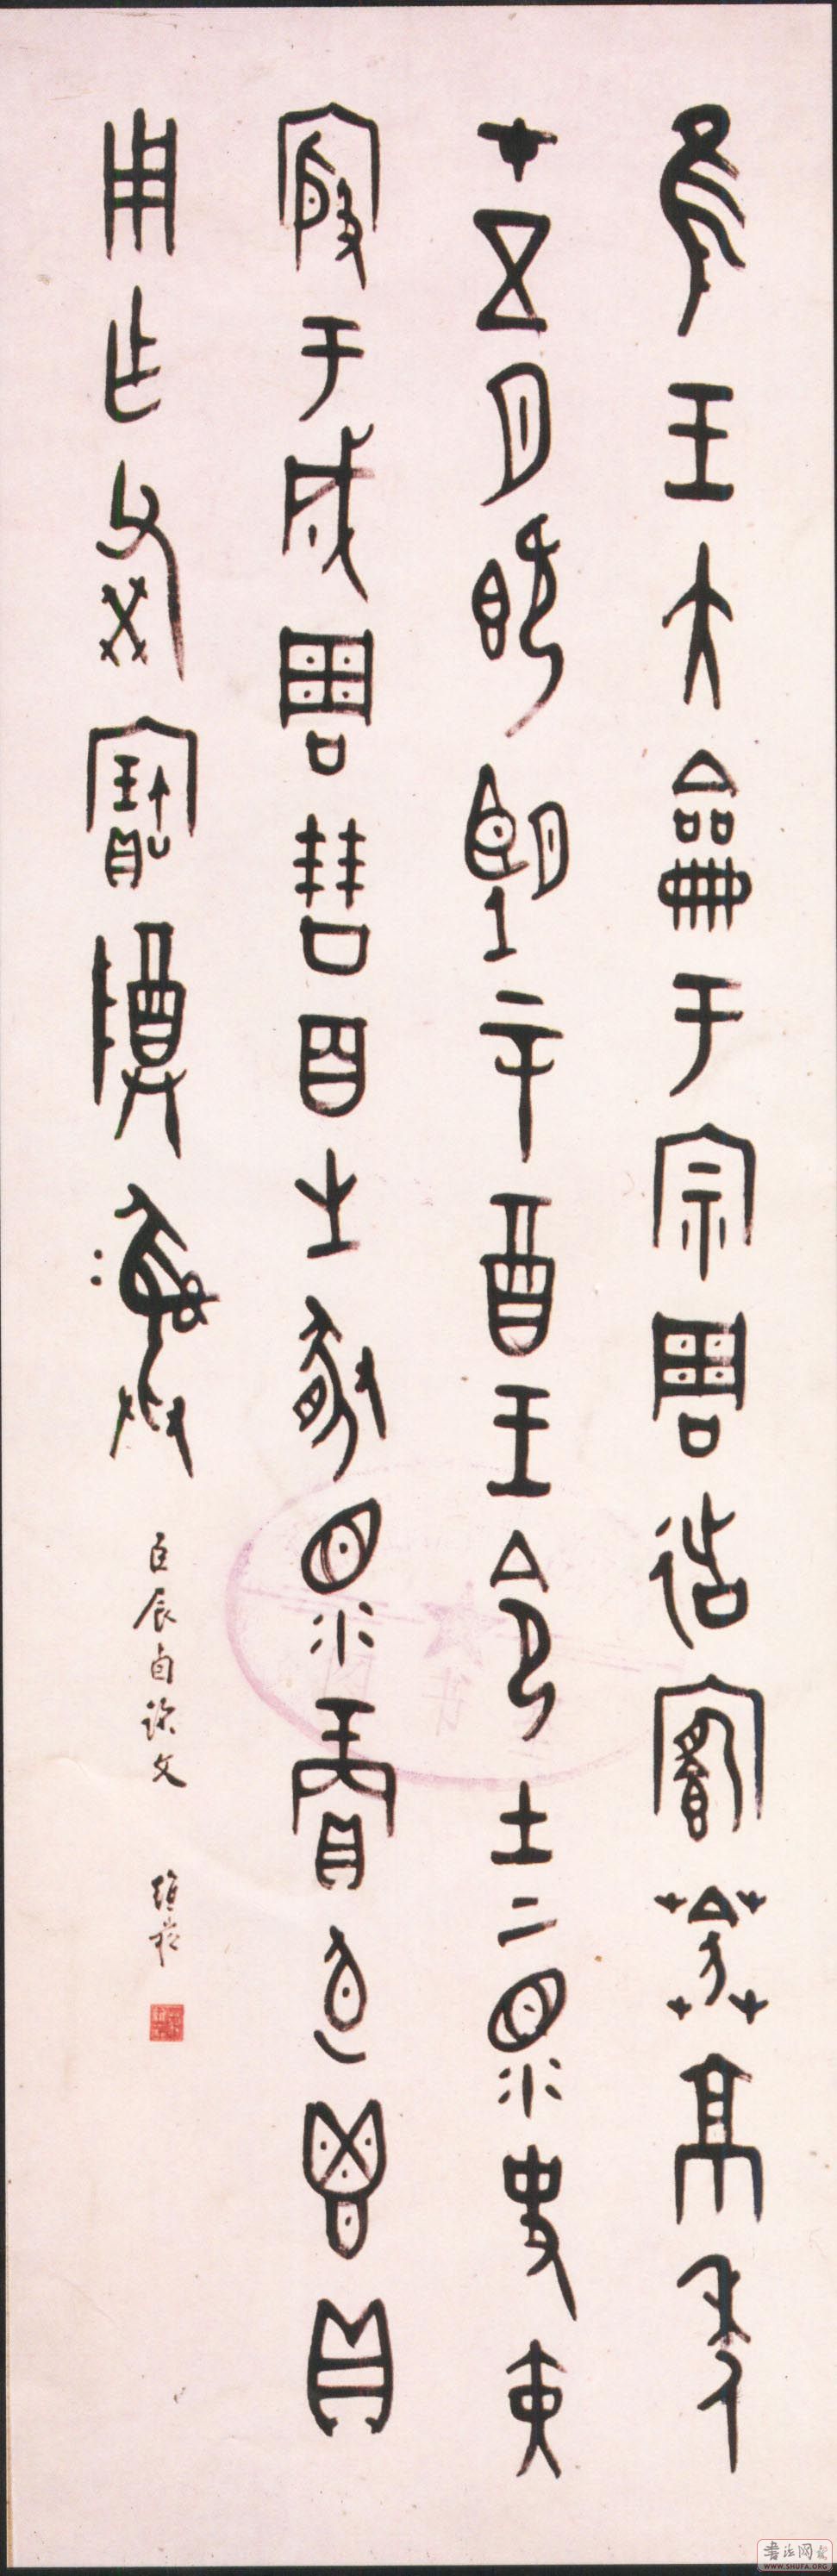 隹王大龠于宗周京年
才五月既望辛酉王令士上眔史寅
殷于成周百生豚眔賞卣鬯貝
用乍父癸寶尊彝
臣辰卣銘文
書法网
WWW.SHUFA.ORG